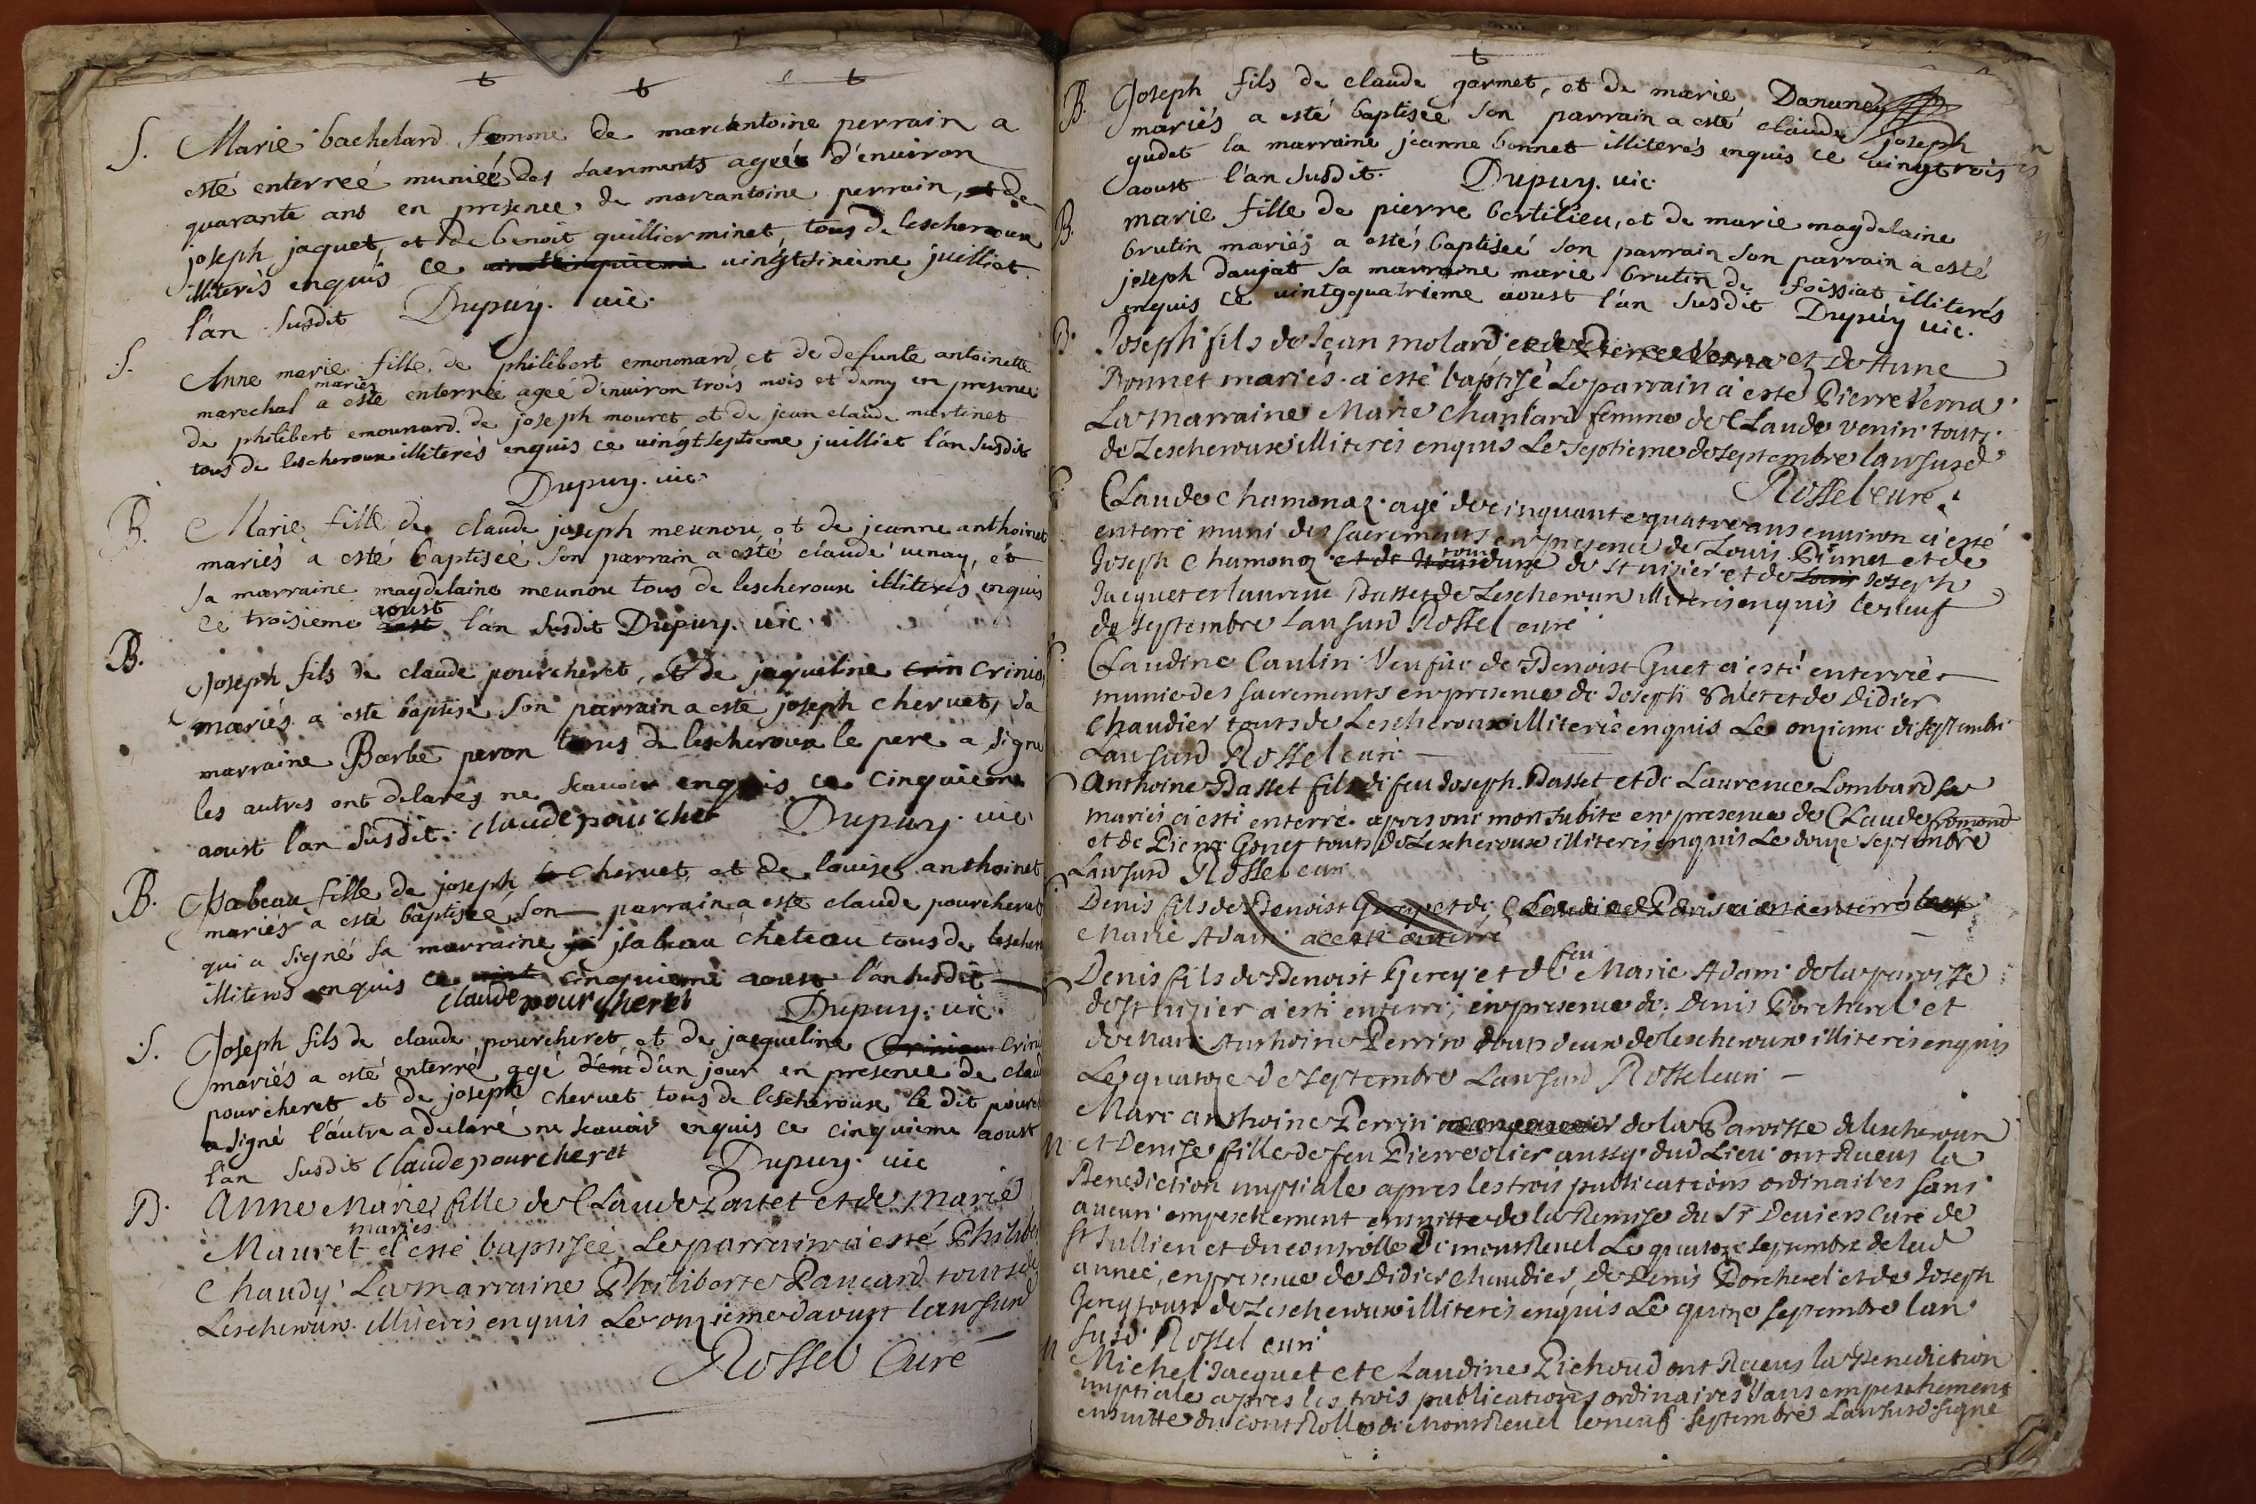 S. Marie bachelard femme de marcantoine perrain a
esté enterreé munieé des sacrements ageé d'enuiron
quarante ans en presence de marcantoine perrain, et de
joseph jaquet, et de benoit guillierminet tous de lescheroux
illiterés enquis ce uingtsixieme juilliet
l'an susdit Dupuy. uic.
S. Anne marie fille de philibert emounard et de defunte antoinette
marechal mariés a esté enterreé ageé d'enuiron trois mois et demy en presence
de philibert emounard. de joseph mouret et de jean claude martinet
tous de lescheroux illiterés enquis ce uingtseptieme juilliet l'an susdit
Dupuy. uic.
B. Marie fille de claude joseph meunou, et de jeanne anthoinet
mariés a esté baptiseé son parrain a esté claude uenay, et
sa marraine magdelaine meunou tous de lescheroux illiterés enquis
ce troisieme aoust l'an susdit Dupuy. uic.
B. Joseph fils de claude pourcheret, et de jaqueline crin
mariés a esté baptisé son parrain a esté joseph cheruet, sa
marraine Barbe peron tous de lescheroux le pere a signé
les autres ont delarés ne scauoir enquis ce cinquieme
aoust l'an susdit. claude pourcheret Dupuy. uic
B. Jsabeau fille de joseph cheruet, et de louise anthoinet
mariés a esté baptiseé son parrain a esté claude pourcheret
qui a signé sa marraine jsabeau chateau tous de lescher
illiterés enquis ce cinquieme aoust l'an susdit
claude pourcheret Dupuy. uic.
S. Joseph fils de claude pourcheret et de jacqueline Crin
mariés a esté enterré agé d'un jour en presence de claud
pourcheret et de joseph cheruet tous de lescheroux le dit pourch
a signé l'autre a delaré ne scauoir enquis ce cinquieme aoust
l'an susdit claude pourcheret Dupuy. uic
B. Anne Marie fille de Claude Pantet et de marie
Mauret mariés a esté baptisée Le parrain a esté Philib
Chaudy La marraine Philiberte Pancard tous de
Lescheroux illiterés enquis Le onzieme daoust lan susd
Rossel Curé
B. Joseph fils de claude garmet, et de marie
mariés a esté baptiseé son parrain a esté claude joseph
gudet la marraine jeanne bonnet illiterés enquis ce uingtrois
aoust l'an susdit. Dupuy. uic.
B. marie fille de pierre bertilieu, et de marie magdelaine
brutin mariés a estés baptiseé son parrain son parrain a esté
joseph daujat sa marraine marie brutin de foissiat illiterés
enquis ce uintgquatrieme aoust l'an susdit Dupuy uic.
B. Joseph fils de Jean molard et de Anne
Bonnet mariés a esté baptisé Le parrain a esté Pierre Verna
La marraine Marie Chanlard femme de Claude venin tous
de Lescheroux illiterés enquis Le septieme de septembre lan susd
Rossel curé
S. Claude Chamonaz agé de cinquante quatre ans enuiron a esté
enterré muni des sacrements en presence de Louis Brunet et de
Joseph Chamonaz tous deux de st nizier et de Joseph
Jacquet et laurent Basset de Lescheroux illiterés enquis le neuf
de septembre Lan susd Rossel curé
S. Claudine Caulin Veufue de Benoist Guet a esté enterrée
munie des sacrements en presence de Joseph Valet et de Didier
Chaudier tous de Lescheroux illiterés enquis Le onzieme de septembre
Lan susd Rossel curé
Anthoine Basset fils de feu Joseph Basset et de Laurence Lombard
mariés a esté enterré apres une mort subite en presence de Claude fromond
et de Pierre Gonet tous de Lescheroux illiterés enquis Le douze septembre
Lan susd Rossel curé
Denis fils de Benoist Gerey et de
Marie Adam a esté enterré
Denis fils de Benoist Gerey et de feu Marie Adam de la paroisse
de st nizier a esté enterré en presence de Denis Porcherel et
de Marc Anthoine Perrin tous deux de Lescheroux illiterés enquis
Le quatorze de septembre Lan susd Rossel curé
M Marc anthoine Perrin de la Paroisse de lescheroux
et Denise fille de feu Pierre olier aussy dud Lieu ont Receus la
Benediction nuptiale apres les trois publications ordinaires sans
aucun empeschement ensuitte de la Remise du Sr Deuiers Curé de
st Jullien et du controlle de montReuel Le quatorze septembre de lad
année, en presence de Didier Chaudier, de Denis Porcherel et de Joseph
Gerey tous de Lescheroux illiterés enquis Le quinze septembre lan
susd Rossel curé
M Michel Jacquet et Claudine Pichoud ont Receus la Benediction
nuptiale apres les trois publications ordinaires sans empeschement
ensuitte du contRolle de MontReuel le neuf septembre Lan susd signé